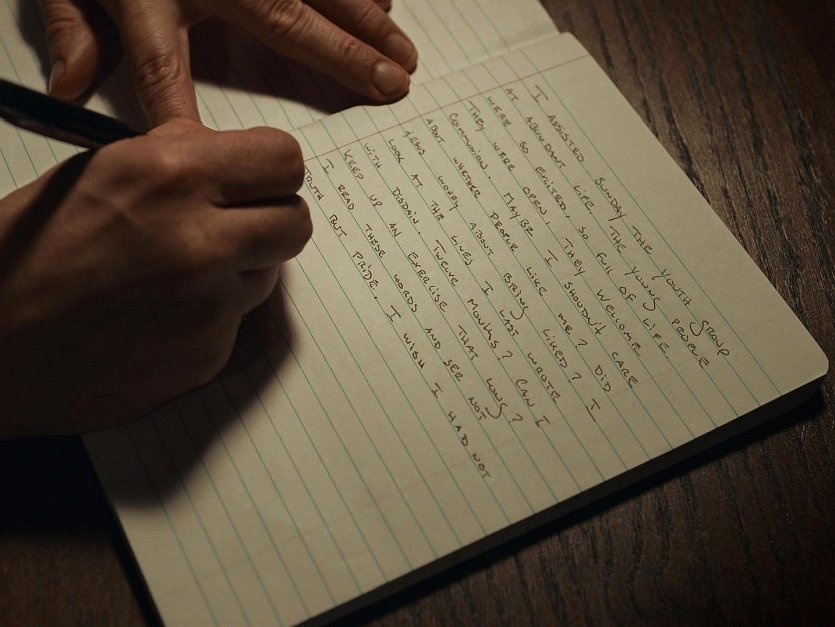 I ASSISTED SUNDAY THE YOUTH GROUP
AT ABUNDANT LIFE. THE YOUNG PEOPLE
WERE SO EXCITED, SO FULL OF LIFE.
THEY WERE OPEN. THEY WELCOME
COMMUNION. MAYBE I SHOULDN'T CARE
ABOUT WHETHER PEOPLE LIKE ME? DID
JESUS WORRY ABOUT BEING LIKED? I
LOOK AT THE LINES I LAST WROTE
WITH DISDAIN. TWELVE MONTHS? CAN I
KEEP UP AN EXERCISE THAT LONG?
I READ THESE WORDS AND SEE NOT
TRUTH BUT PRIDE. I WISH I HAD NOT